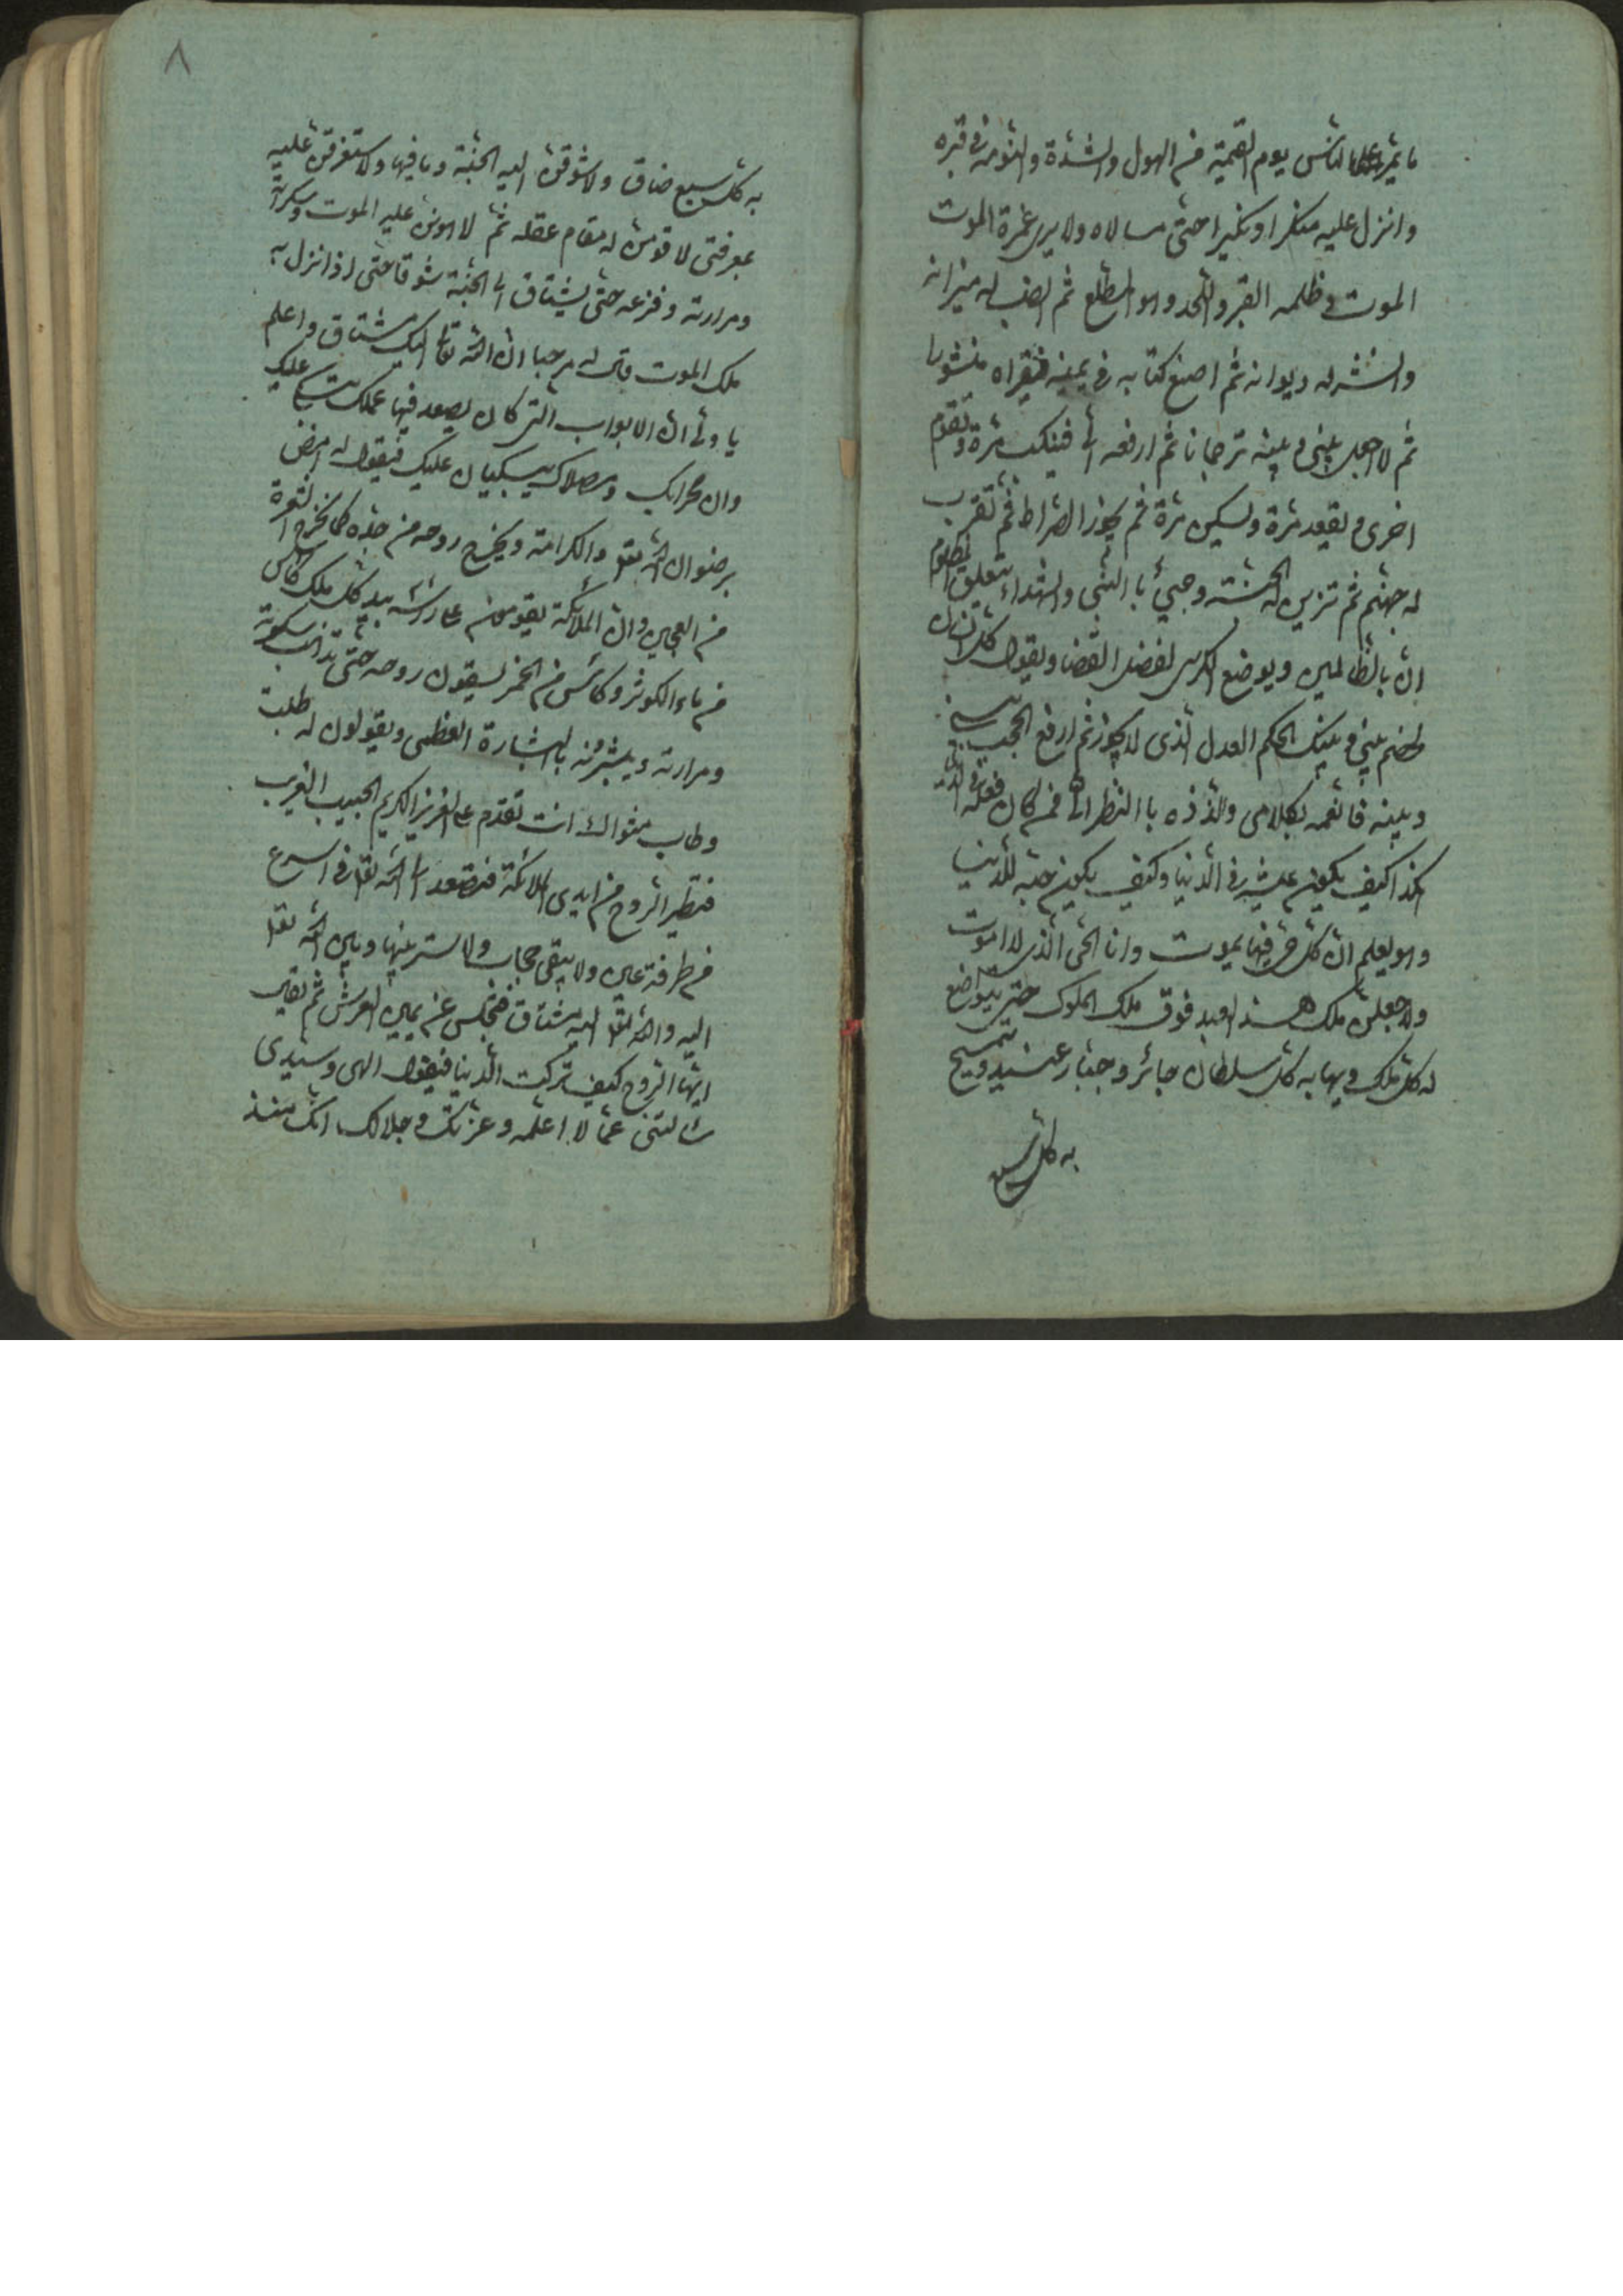 ما يمر على الناس يوم القيمة من الهول والشدة وانومه فى قبره
وانزل عليه منكرا ونكيرا حتى يسالاه ولا يرى غمرة الموت
الموت وظلمه القبر واللحد وهو المطلع ثم انصب له ميزانه
وانشر له ديوانه ثم اضع كتابه فى يمينه فيقراه منشورا
ثم لا اجعل بينى وبينه ترجمانا ثم ارفعه الى فينكب مرة وتقوم
اخرى ويقعد مرة ويسكن مرة ثم يجوز الصراط ثم تقرب
له جهنم ثم تزين له الجنة وجيئ بالنبى والشهداء يتعلق المظلوم
ان بالظالمين ويوضع الكرسى لفضل القضا ويقول كل انسان
لخصم بينى وبينك الحكم العدل الذى لا يجوز ثم ارفع الحجب بينى
وبينه فانعمه بكلامى والذذه بالنظر الى فمن كان فعله فى الدنيا
هكذا كيف يكون عيشه فى الدنيا وكيف يكون حبه للدنيا
وهو يعلم ان كل حى فيها يموت وانا الحى الذى لا اموت
ولاجعلن ملك هذا العبد فوق ملك الملوك حتى يتواضع
له كل ملك ويهابه كل سلطان جائر وجبار عنيد ويتمسح
به كل سبع
٨
به كل سبع ضاق ولاشوقن اليه الجنة وما فيها ولاستغرقن عليه
بمعرفتى لاقومن له مقام عقله ثم لاهونن عليه الموت وسكرته
ومرارته وفزعه حتى يشتاق الى الجنة شوقا حتى اذا نزل به
ملك الموت قال له مرحبا ان الله تعالى اليك مشتاق واعلم
يا ولى ان الابواب التى كان يصعد فيها عملك تبكى عليك
وان محرابك ومصلاك يبكيان عليك فيقول له امض
برضوان الله تعالى والكرامة ويخرج روحه من جسده كما تخرج الشعرة
من العجين وان الملائكة يقومون عند راسه بيد كل ملك كاس
من ماء الكوثر وكاس من الخمر يسقون روحه حتى تذهب سكرته
ومرارته ويبشرونه بالبشارة العظمى ويقولون له طبت
وطاب مثواك انت تقدم على العزيز الكريم الحبيب القريب
فتطير الروح من ايدى الملائكة فتصعد الى الله تعالى فى اسرع
من طرفة عين ولا يبقى حجاب ولا ستر بينها وبين الله تعالى
اليه والله تعالى اليه مشتاق فتجلس عن يمين العرش ثم يقال
ايتها الروح كيف تركت الدنيا فيقول الهى وسيدى
سالتنى عما لا اعلمه وعزتك وجلالك انك منذ